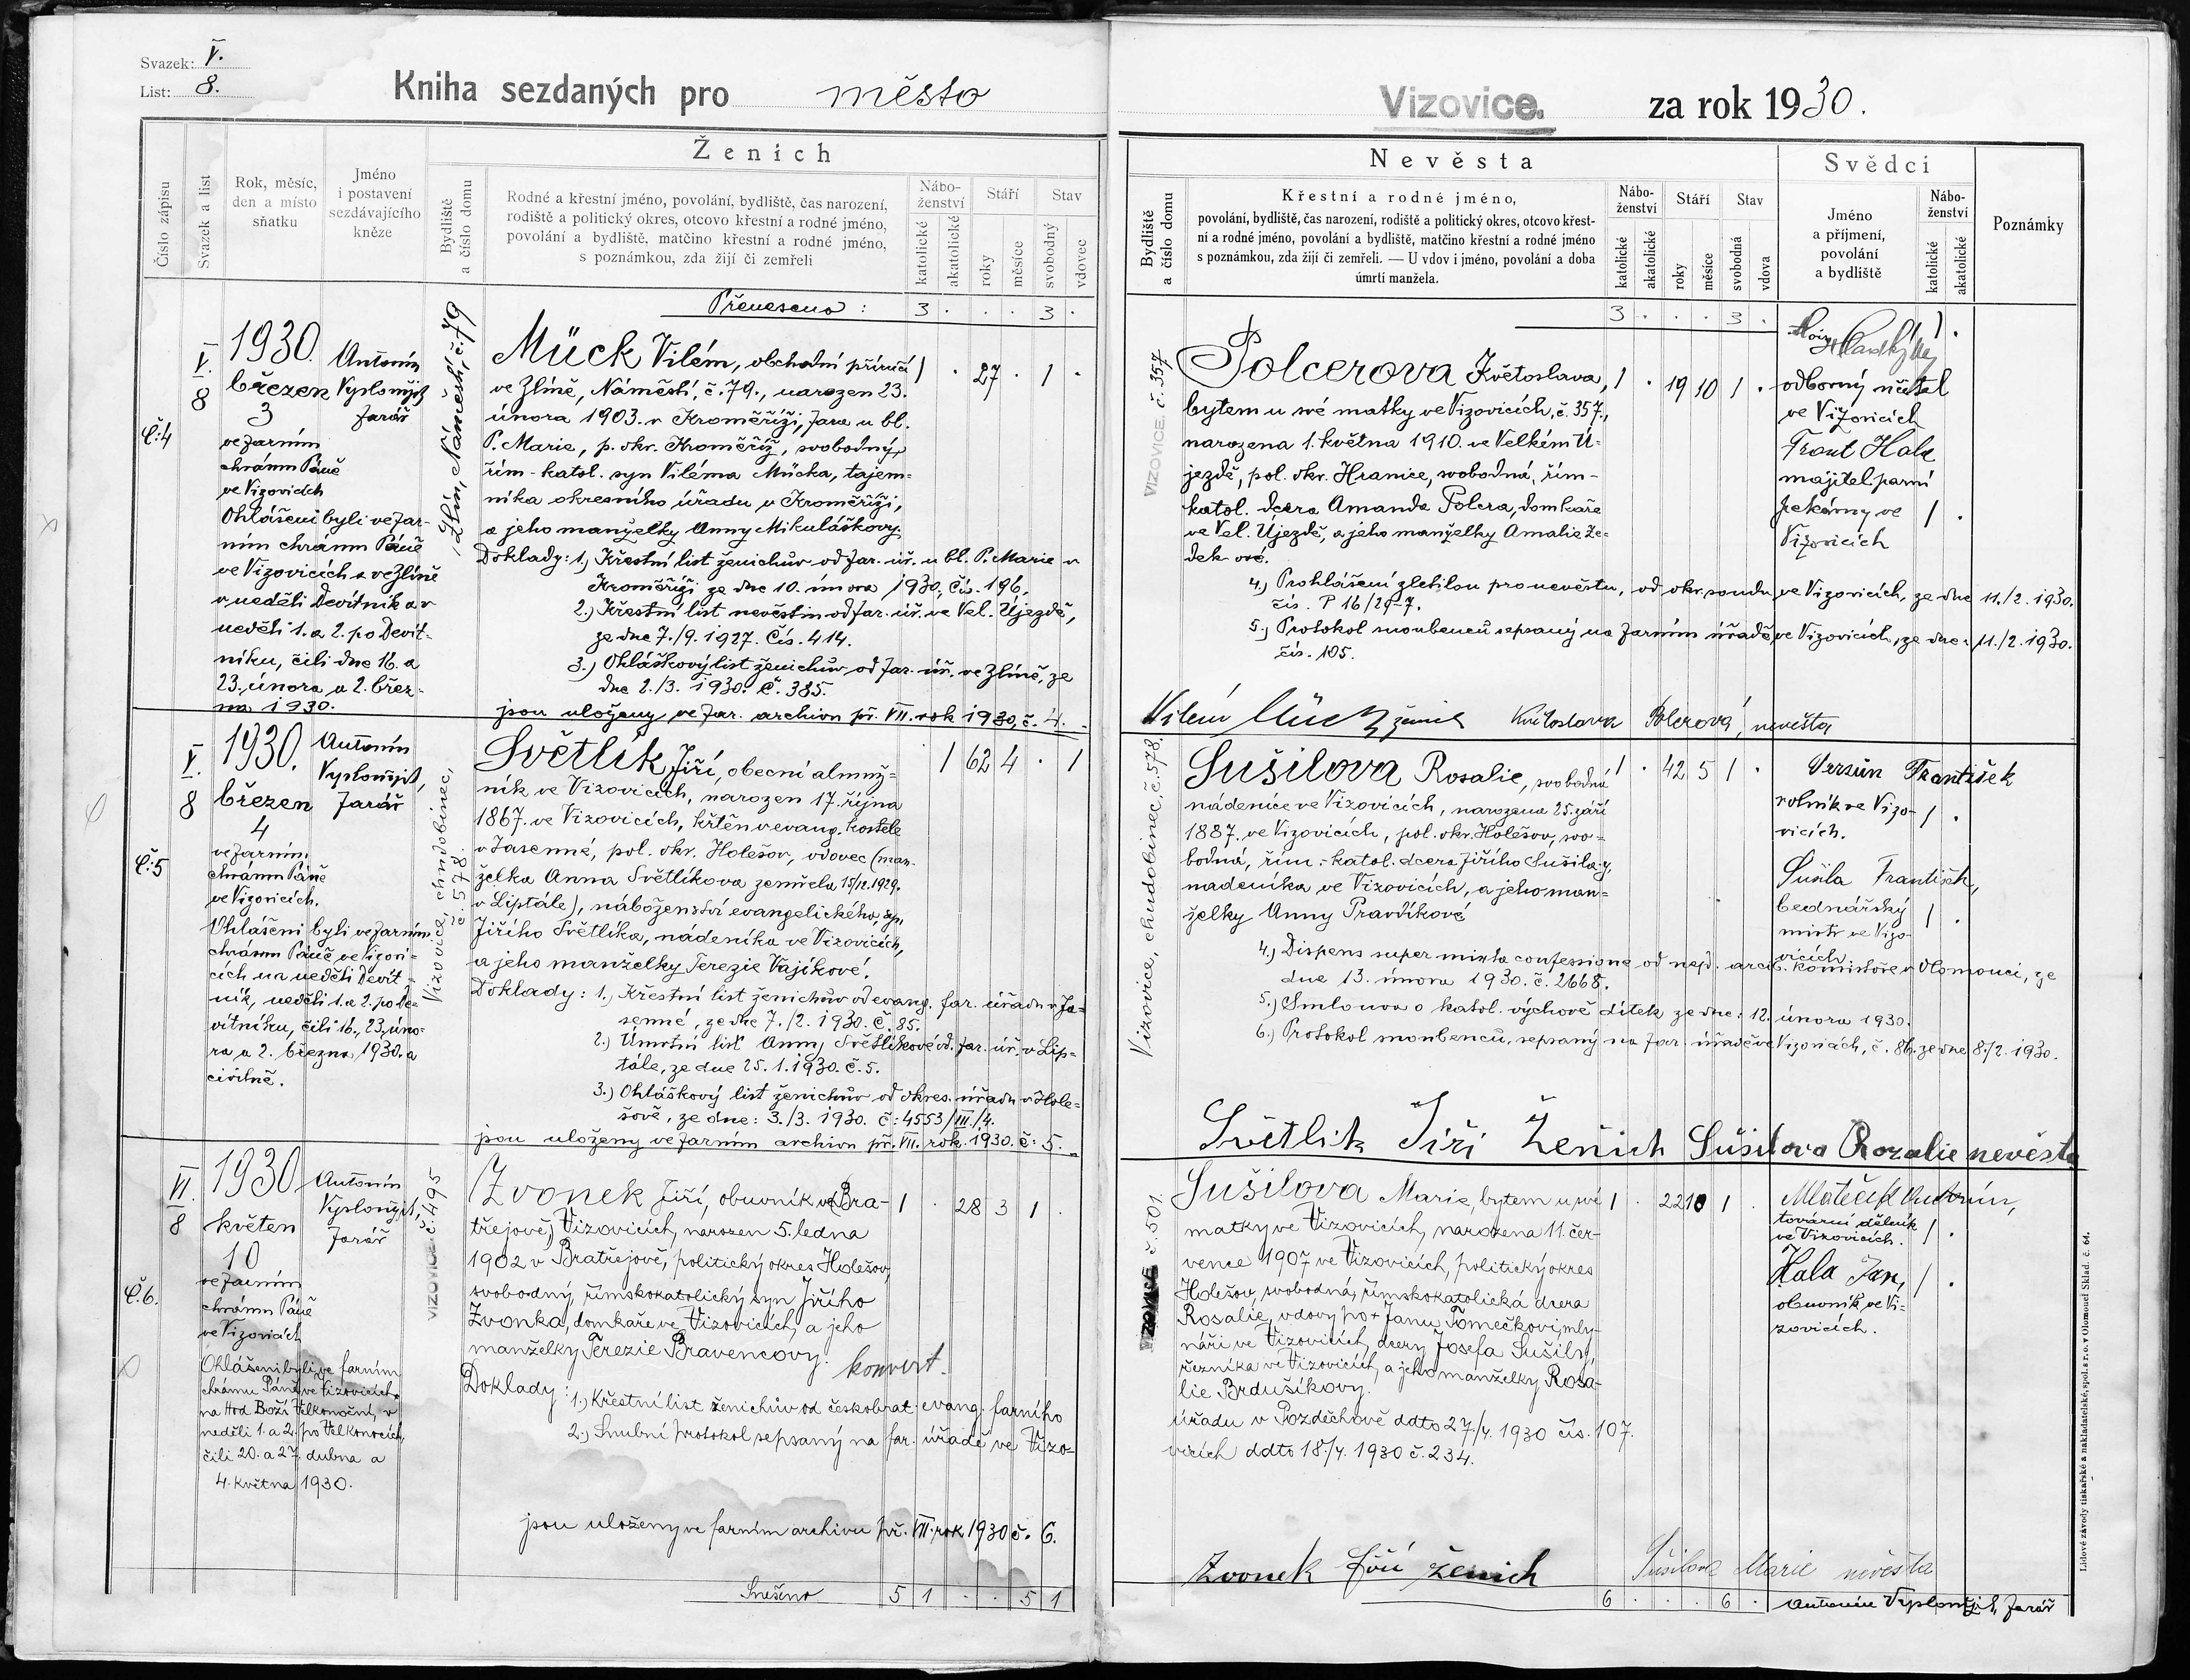 Svazek: V.
List: 8.
Kniha sezdaných pro město
Číslo zápisu
Svazek a list
Rok, měsíc,
den a místo
sňatku
Jméno
i postavení
sezdávajícího
kněze
Ženich
Bydliště
a číslo domu
Rodné a křestní jméno, povolání, bydliště, čas narození,
rodiště a politický okres, otcovo křestní a rodné jméno,
povolání a bydliště, matčino křestní a rodné jméno,
s poznámkou, zda žijí či zemřeli
Nábo-
ženství
katolické
akatolické
Stáří
roky
měsíce
Stav
svobodný
vdovec
Přeneseno : 3 . . . 3 .
Č:4
V.
8
1930.
březen
3
ve farním
chrámu Páně
ve Vizovicích
Ohlášeni byli ve far-
ním chrámu Páně
ve Vizovicích a ve Zlíně
v neděli Devítník a v
neděli 1. a 2. po Devít-
níku, čili dne 16. a
23. února a 2. břez-
na 1930.
Antonín
Vyslonžil,
farář
Zlín, Náměstí, č. 79
Mück Vilém, obchodní příručí 1 . 27 . 1 .
ve Zlíně, Náměstí, č. 79., narozen 23.
února 1903. v Kroměříži, fara u bl.
P. Marie, p. okr. Kroměříž, svobodný,
řím-katol. syn Viléma Mücka, tajem-
níka okresního úřadu v Kroměříži,
a jeho manželky Anny Mikuláškovy.
Doklady: 1.) Křestní list ženichův od far. úř. u bl. P. Marie v
Kroměříži ze dne 10. února 1930, čís. 196.
2.) Křestní list nevěstin od far. úř. ve Vel. Újezdě,
ze dne 7./9. 1927. Čís. 414.
3.) Ohláškový list ženichův od far. úř. ve Zlíně, ze
dne 2./3. 1930. Č. 385.
jsou uloženy ve far. archivu př. VII. rok 1930, č. 4.
Č:5
V.
8
1930.
březen
4
ve farním
chrámu Páně
ve Vizovicích.
Ohlášeni byli ve farním
chrámu Páně ve Vizovi-
cích na neděli Devít-
ník, neděli 1. a 2. po De-
vítníku, čili 16., 23. úno-
ra a 2. března 1930. a
civilně.
Antonín
Vyslonžil,
farář
Vizovice, chudobinec,
č 578.
Světlík Jiří, obecní almuž- 1 62 4 . 1
ník ve Vizovicích, narozen 17. října
1867. ve Vizovicích, křtěn v evang. kostele
v Jasenné, pol. okr. Holešov, vdovec (man-
želka Anna Světlíkova zemřela 15/12.1929.
v Liptále), náboženství evangelického, syn
Jiřího Světlíka, nádeníka ve Vizovicích,
a jeho manželky Terezie Vajíkové.
Doklady: 1.) Křestní list ženichův od evang. far. úřadu v Ja-
senné, ze dne 7./2. 1930. Č. 85.
2.) Úmrtní list Anny Světlíkové od far. úř. v Lip-
tále, ze dne 25. 1. 1930. č. 5.
3.) Ohláškový list ženichův od okres. úřadu v Hole-
šově, ze dne: 3./3. 1930. č: 4553/III./4.
jsou uloženy ve farním archivu př. VII. rok. 1930. č: 5.
Č.6.
VI.
8
1930
květen
10
ve farním
chrámu Páně
ve Vizovicích
Ohlášeni byli ve farním
chrámu Páně ve Vizovicích
na Hod Boží Velkonoční, v
neděli 1. a 2. po Velkonocích,
čili 20. a 27. dubna a
4. května 1930.
Antonín
Vyslonžil,
farář
VIZOVICE č 495
Zvonek Jiří, obuvník v Bra- 1 . 28 3 1 .
třejově, Vizovicích, narozen 5. ledna
1902 v Bratřejově, politický okres Holešov,
svobodný, římskokatolický syn Jiřího
Zvonka, domkaře ve Vizovicích, a jeho
manželky Terezie Bravencovy. konvert.
Doklady: 1.) Křestní list ženichův od českobrat. evang. farního
2.) Snubní protokol sepsaný na far. úřadě ve Vizo-
jsou uloženy ve farním archivu př. VII. rok 1930 č. 6.
Snešeno 5 1 . . 5 1
Vizovice. za rok 1930.
Nevěsta
Bydliště
a číslo domu
Křestní a rodné jméno,
povolání, bydliště, čas narození, rodiště a politický okres, otcovo křest-
ní a rodné jméno, povolání a bydliště, matčino křestní a rodné jméno
s poznámkou, zda žijí či zemřeli. — U vdov i jméno, povolání a doba
úmrtí manžela.
Nábo-
ženství
katolické
akatolické
Stáří
roky
měsíce
Stav
svobodná
vdova
Svědci
Jméno
a příjmení,
povolání
a bydliště
Nábo-
ženství
katolické
akatolické
Poznámky
3 . . . 3 .
VIZOVICE. č. 357
Polcerova Květoslava, 1 . 19 10 1 .
bytem u své matky ve Vizovicích, č. 357.,
narozena 1. května 1910. ve Velkém Ú-
jezdě, pol. okr. Hranice, svobodná, řím-
katol. dcera Amanda Polcra, domkaře
ve Vel. Újezdě, a jeho manželky Amalie Ze-
dek-ové.
4.) Prohlášení zletilou pro nevěstu, od okr. soudu ve Vizovicích, ze dne 11./2. 1930.
čís. P 16/29-7.
5.) Protokol snoubenců sepsaný na farním úřadě ve Vizovicích, ze dne: 11./2. 1930.
čís. 105.
odborný učitel
ve Vizovicích
Frant Hala
májitel parní
pekárny ve
Vizovicích
1 .
1 .
Vilém Mück ženich Květoslava Polcrová, nevěsta
Vizovice, chudobinec, č. 578.
Sušilova Rosalie, svobodná 1 . 42 5 1 .
nádenice ve Vizovicích, narozena 25. září
1887. ve Vizovicích, pol. okr. Holešov, svo-
bodná, řím.-katol. dcera Jiřího Sušily,
nadeníka ve Vizovicích, a jeho man-
želky Anny Pravdíkové
4.) Dispens super mixta confessione od nejd. arcib. konsistoře v Olomouci, ze
dne 13. února 1930. č. 2668.
5.) Smlouva o katol. výchově dítek ze dne: 12. února 1930.
6.) Protokol snoubenců, sepsaný na far. úřadě ve Vizovicích, č. 86. ze dne 8./2. 1930.
František
rolník ve Vizo-
vicích.
1 .
Sušila František,
bednářský
mistr ve Vizo-
vicích
1 .
Světlik Jiři Ženich Sušilova Rozalie nevěsta
č. 501.
Sušilova Marie, bytem u své 1 . 22 10 1 .
matky ve Vizovicích, narozena 11. čer-
vence 1907 ve Vizovicích, politický okres
Holešov, svobodná, římskokatolická dcera
Rosalie, vdovy po + Janu Tomečkovi, mly-
náři ve Vizovicích, dcery Josefa Sušily,
řezníka ve Vizovicích, a jeho manželky Rosa-
lie Brdušíkovy.
úřadu v Pozděchově ddto 27./4. 1930 čís. 107.
vicích ddto 18./4. 1930 č. 234.
Mlateček Antonín,
tovární dělník
ve Vizovicích.
1 .
Hala Jan,
obuvník ve Vi-
zovicích.
1 .
Zvonek Jiří ženich Sušilova Marie nevěsta
6 . . . 6 . Antonín Vyslonžil, farář
Lidové závody tiskařské a nakladatelské, spol. s r. o. v Olomouci Sklad. č. 64.